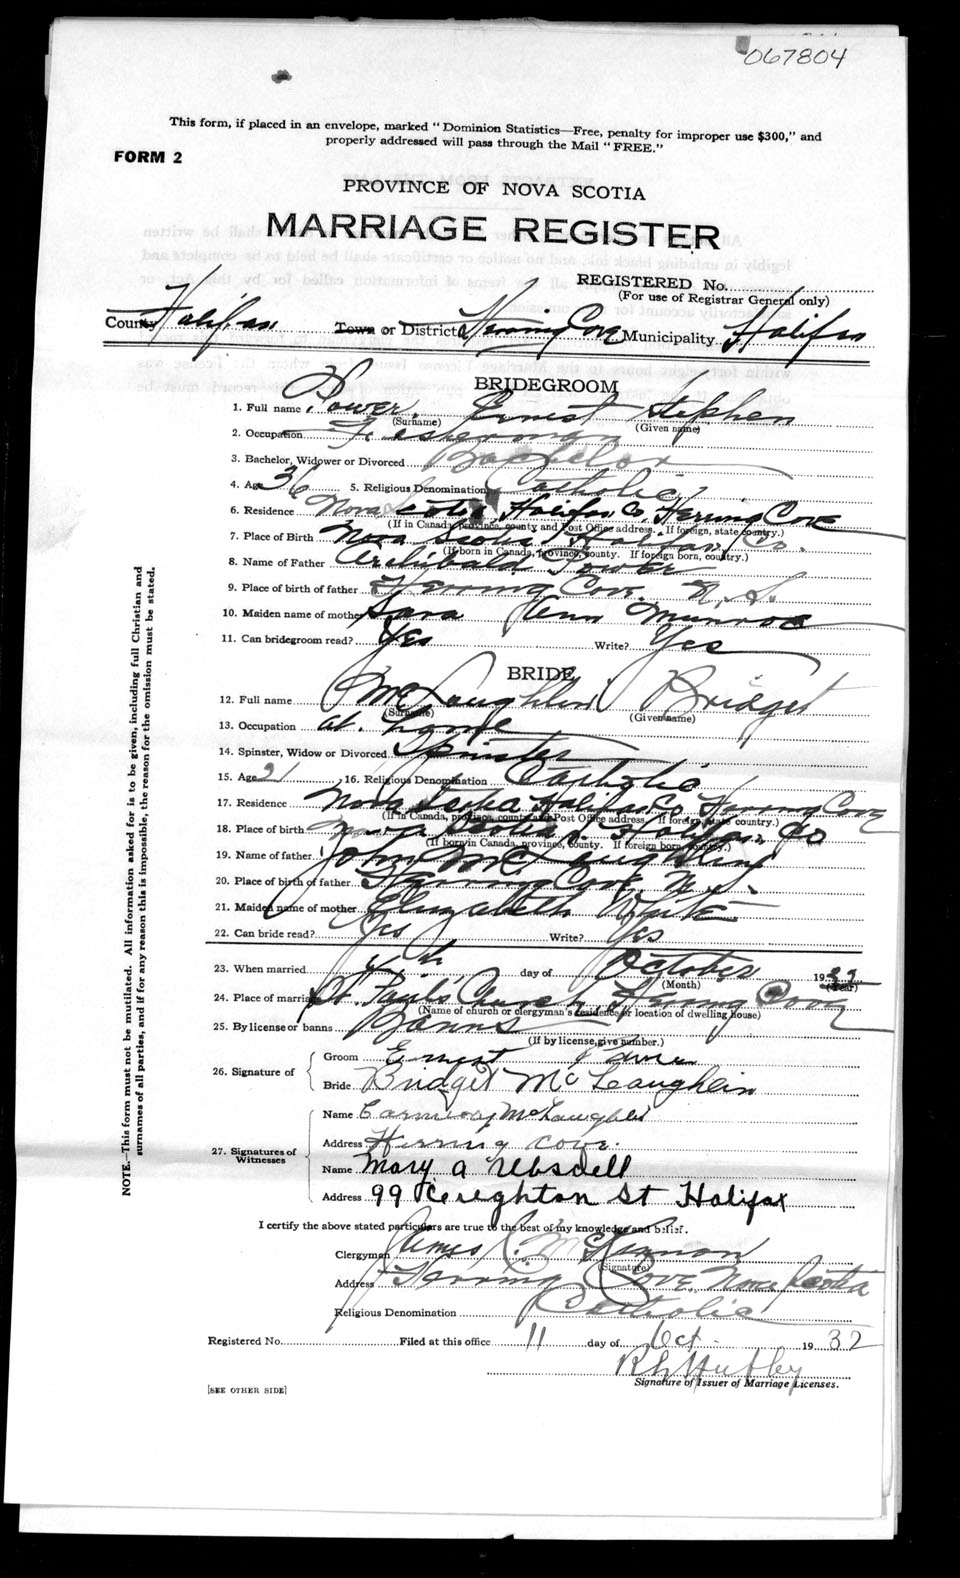 067804
This form, if placed in an envelope, marked "Dominion Statistics—Free, penalty for improper use $300," and
properly addressed will pass through the Mail "FREE."
FORM 2
PROVINCE OF NOVA SCOTIA
MARRIAGE REGISTER
REGISTERED No.
(For use of Registrar General only)
County Halifax Town or District Herring Cove Municipality Halifax
BRIDEGROOM
1. Full name Power, Ernest Stephen
(Surname) (Given name)
2. Occupation Fisherman
3. Bachelor, Widower or Divorced Bachelor
4. Age 36 5. Religious Denomination Catholic
6. Residence Nova Scotia, Halifax Co, Herring Cove
(If in Canada, province, county and Post Office address. If foreign, state country.)
7. Place of Birth Nova Scotia Halifax Co.
(If born in Canada, province, county. If foreign born, country.)
8. Name of Father Archibald Power
9. Place of birth of father Herring Cove, N.S.
10. Maiden name of mother Sara Ann Munroe
11. Can bridegroom read? Yes Write? Yes
BRIDE
12. Full name McLaughlin Bridget
(Surname) (Given name)
13. Occupation at home
14. Spinster, Widow or Divorced Spinster
15. Age 21 16. Religious Denomination Catholic
17. Residence Nova Scotia Halifax Co Herring Cove
(If in Canada, province, county and Post Office address. If foreign, state country.)
18. Place of birth Nova Scotia Halifax Co
(If born in Canada, province, county. If foreign born, country.)
19. Name of father John McLaughlin
20. Place of birth of father Herring Cove, N.S.
21. Maiden name of mother Elizabeth White
22. Can bride read? Yes Write? Yes
23. When married day of October 1932
(Month) (Year)
24. Place of marriage St. Paul's Church, Herring Cove
(Name of church or clergyman's residence or location of dwelling house)
25. By license or banns Banns
(If by license, give number.)
26. Signature of
Groom Ernest Power
Bride Bridget McLaughlin
27. Signatures of Witnesses
Name McLaughlin
Address Herring Cove.
Name Mary A Ubsdell
Address 99 Creighton St Halifax
I certify the above stated particulars are true to the best of my knowledge and belief.
Clergyman James McKinnon
(Signature)
Address Herring Cove, Nova Scotia
Religious Denomination Catholic
Registered No. Filed at this office 11 day of Oct. 1932
Signature of Issuer of Marriage Licenses.
[SEE OTHER SIDE]
NOTE.—This form must not be mutilated. All information asked for is to be given, including full Christian and
surnames of all parties, and if for any reason this is impossible, the reason for the omission must be stated.